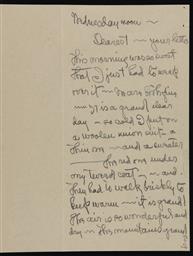 Wednesday noon ~
Dearest — your letter
this morning was so sweet
that I just had to weep
over it —
is a grand clear
day — so cold I put on
a woolen union suit &
thin — and a sweater
this red one under
my tweed coat — and
they had to walk briskly to
keep warm — it is grand!
This air is so wonderful and
dry — this mountain grand